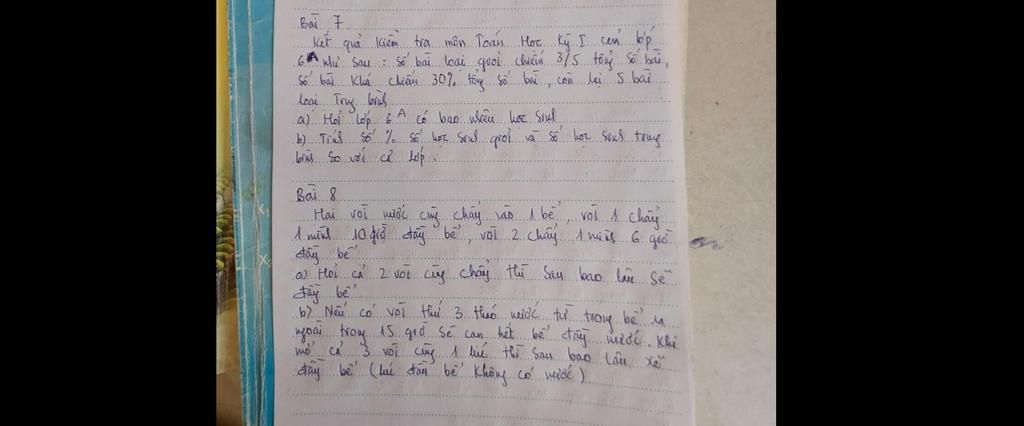 Bài 7
Kết quả kiểm tra môn Toán Học Kỳ I của lớp
6A như sau : Số bài loại giỏi chiếm 3/5 tổng số bài,
Số bài khá chiếm 30% tổng số bài, còn lại 5 bài
loại Trung bình
a) Hỏi lớp 6A có bao nhiêu học sinh
b) Tính số % số học sinh giỏi và số học sinh trung
bình so với cả lớp.
Bài 8
Hai vòi nước cùng chảy vào 1 bể, vòi 1 chảy
1 mình 10 giờ đầy bể, vòi 2 chảy 1 mình 6 giờ
đầy bể
a) Hỏi cả 2 vòi cùng chảy thì sau bao lâu sẽ
đầy bể
b) Nếu có vòi thứ 3 tháo nước từ trong bể ra
ngoài trong 15 giờ sẽ cạn hết bể đầy nước. Khi
mở cả 3 vòi cùng 1 lúc thì sau bao lâu xẽ
đầy bể (lúc đầu bể không có nước)
X₁
X₂